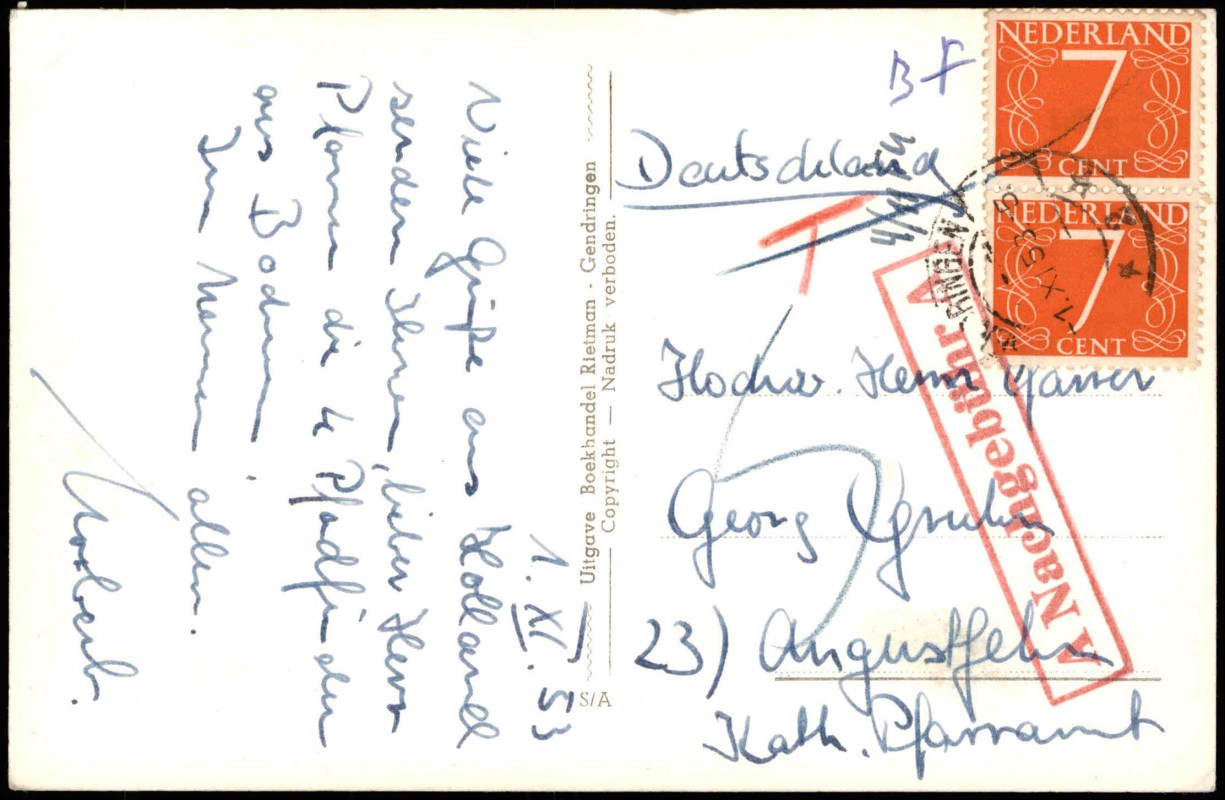 1. XI. 53
Viele Grüße aus Holland
senden Ihnen, lieber Herr
Pfarrer die 4 Pfadfinder
aus Bochum.
Im Namen aller.
Norbert.
Uitgave Boekhandel Rietman - Gendringen
Copyright — Nadruk verboden.
S/A
BF
NEDERLAND
7
CENT
NEDERLAND
7
CENT
-1.XI.53
Deutschland
T
Nachgebühr
Hochw. Herrn Pfarrer
Georg
23) Augustfehn
Kath. Pfarramt